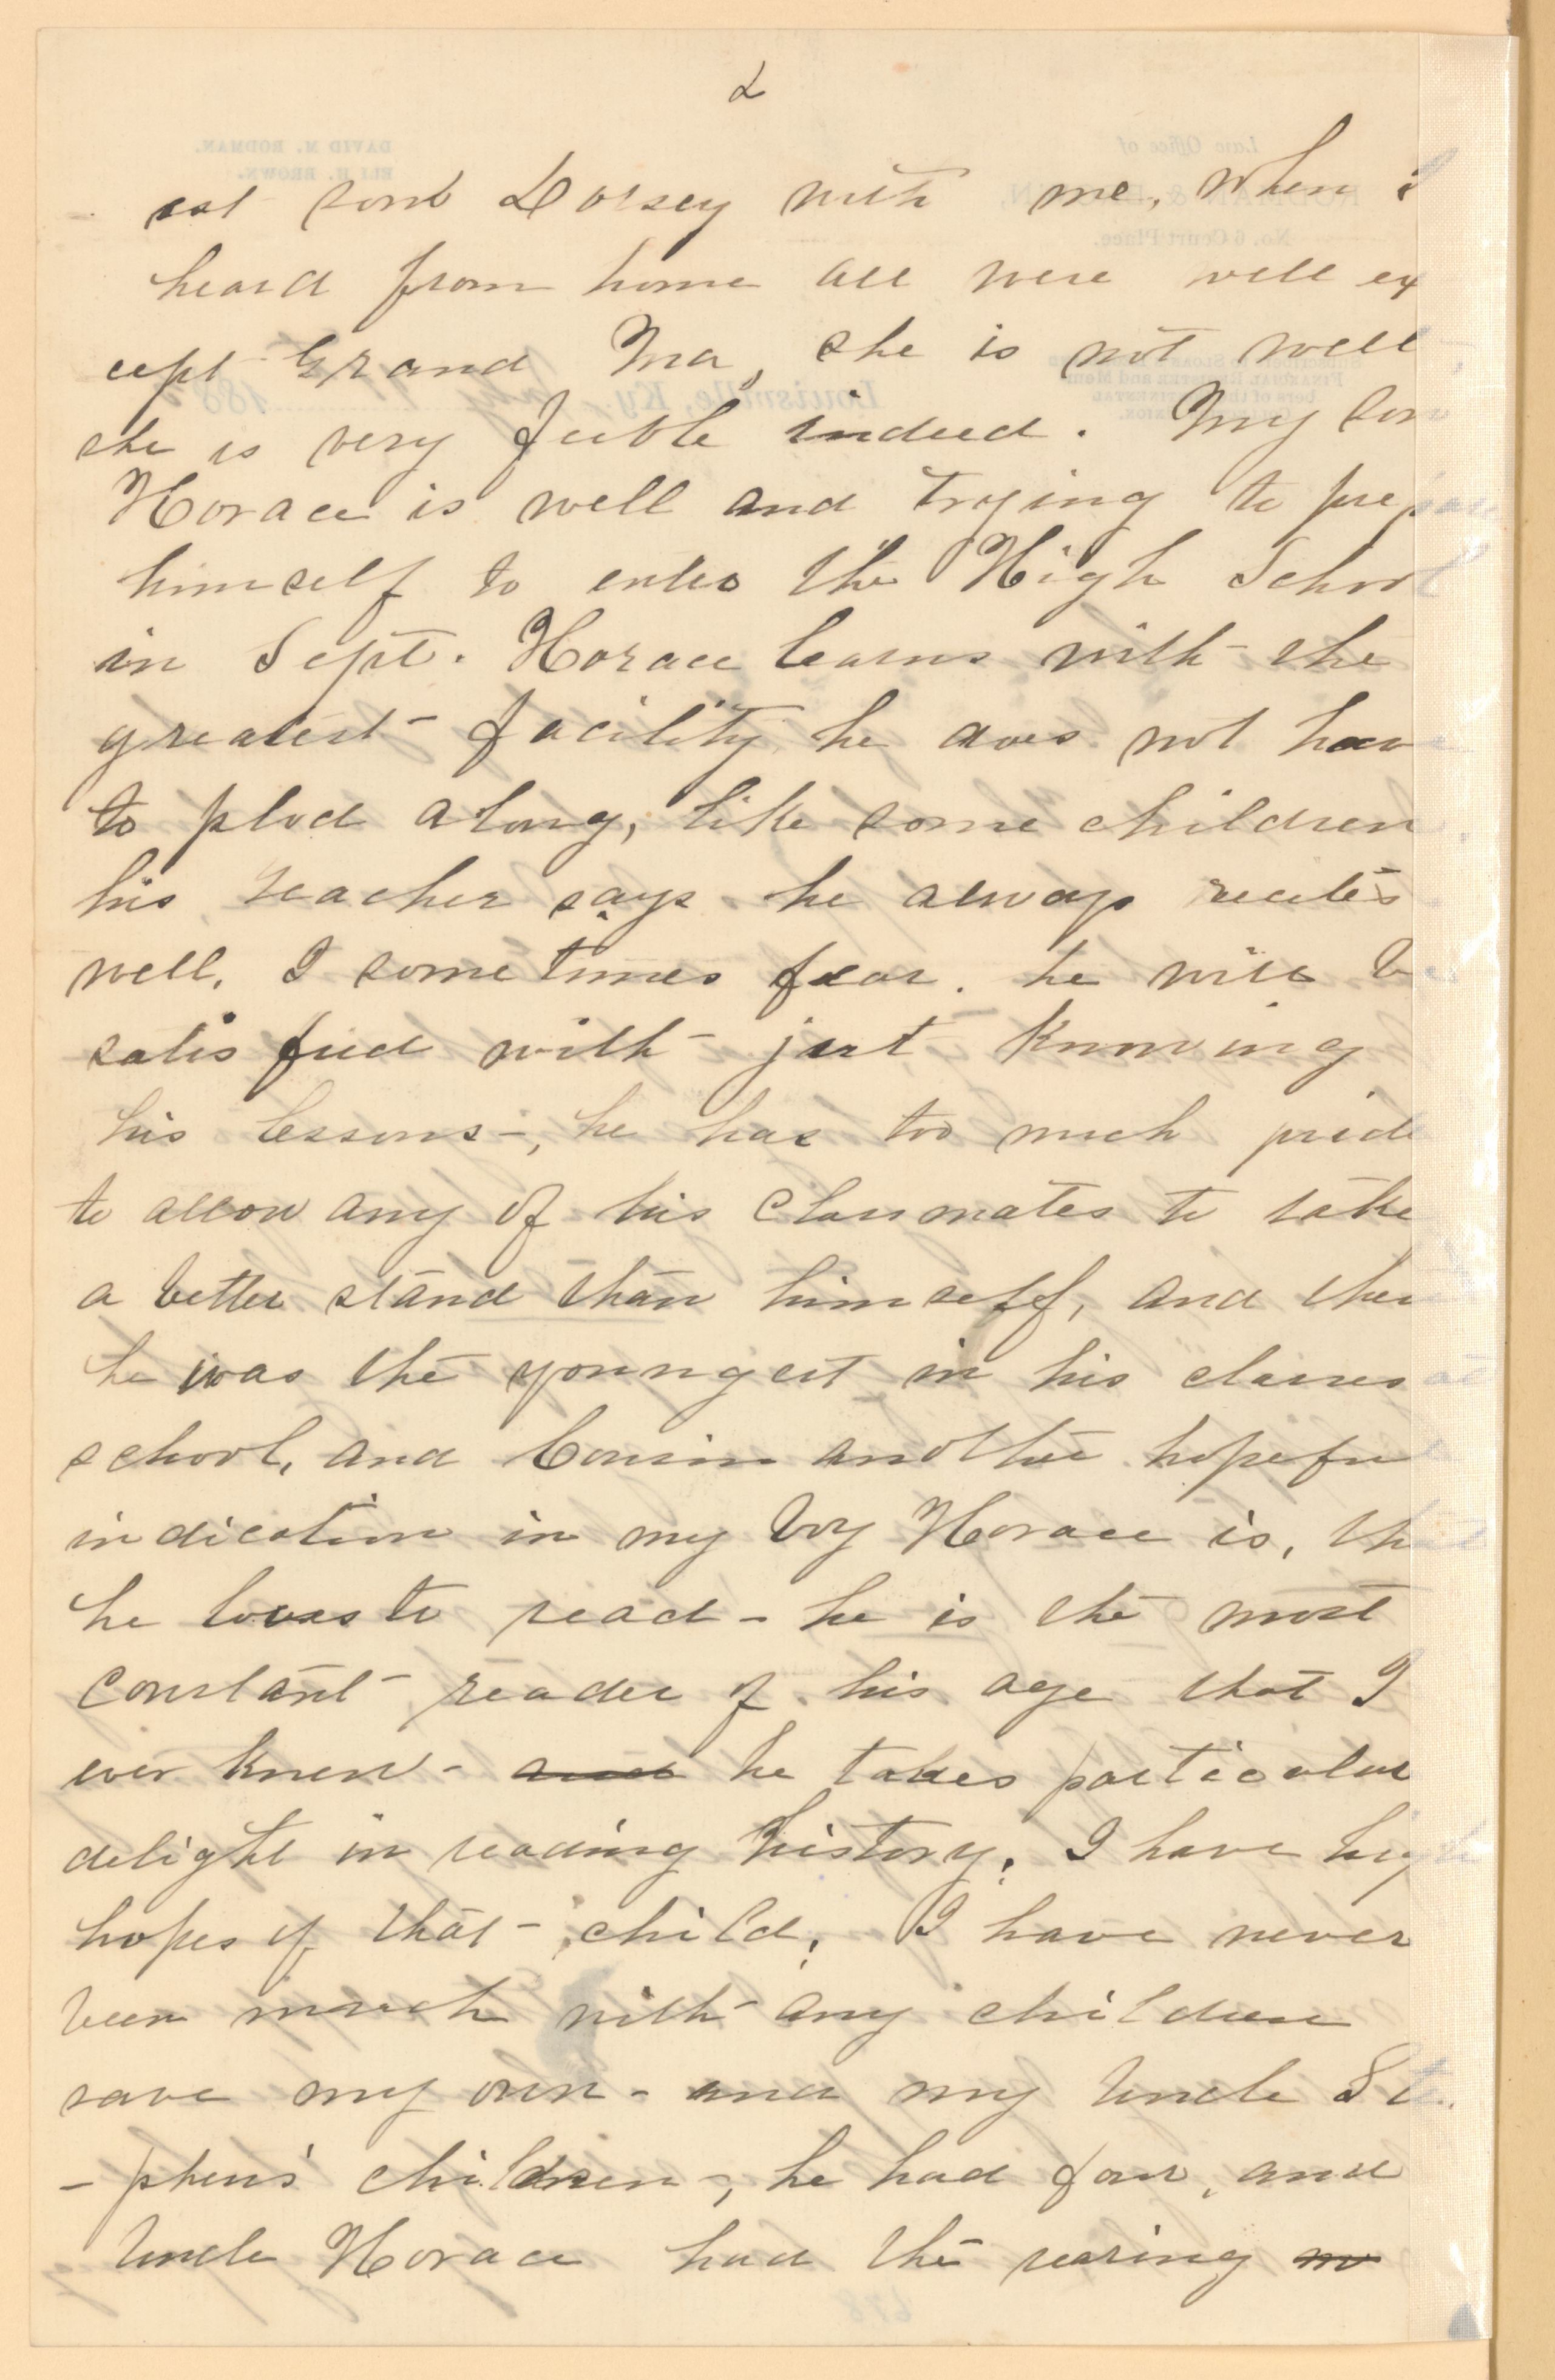 2
est son Dorsey with me, when I
heard from home all were well ex
cept Grand Ma, she is not well,
she is very feeble indeed. My son
Horace is well and trying to prepare
himself to enter the High School
in Sept. Horace learns with the
greatest facility he does not have
to plod along, like some children.
his teacher says he always recites
well, I some times fear he will be
satisfied with just knowing
his lessons-, he has too much pride
to allow any of his classmates to take
a better stand than himself, and then
he was the youngest in his classes at
school, and Cousin another hopeful
indication in my boy Horace is, that
he loves to read - he is the most
constant reader of his age that I
ever knew - and he takes particular
delight in reading history. I have high
hopes of that child. I have never
been much with any children
save my own - and my Uncle Ste-
-phen's children-, he had four, and
Uncle Horace had the rearing no
DAVID M. RODMAN.
ELI H. BROWN.
Law Office of
RODMAN & BROWN,
No. 6 Court Place.
Louisville, Ky. July 188
678